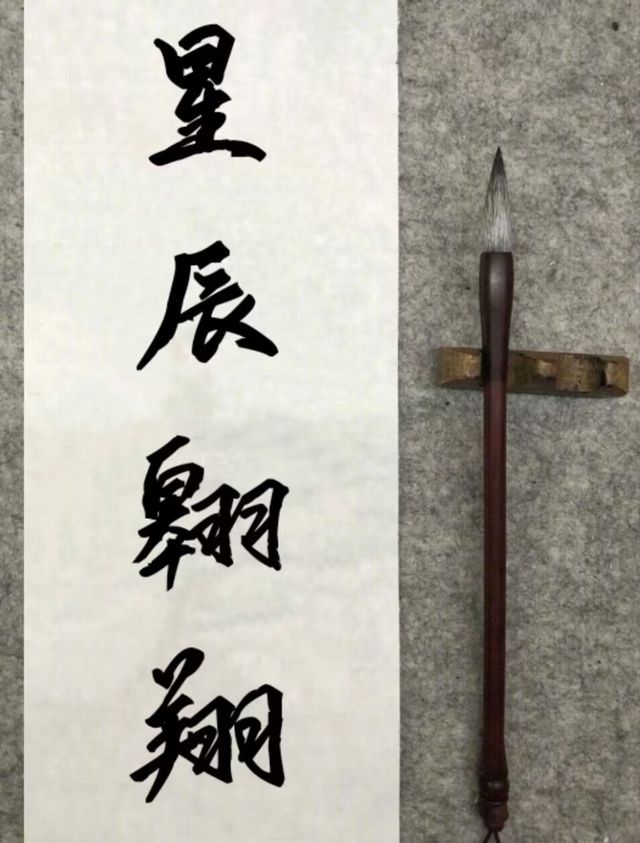 星
辰
翱
翔